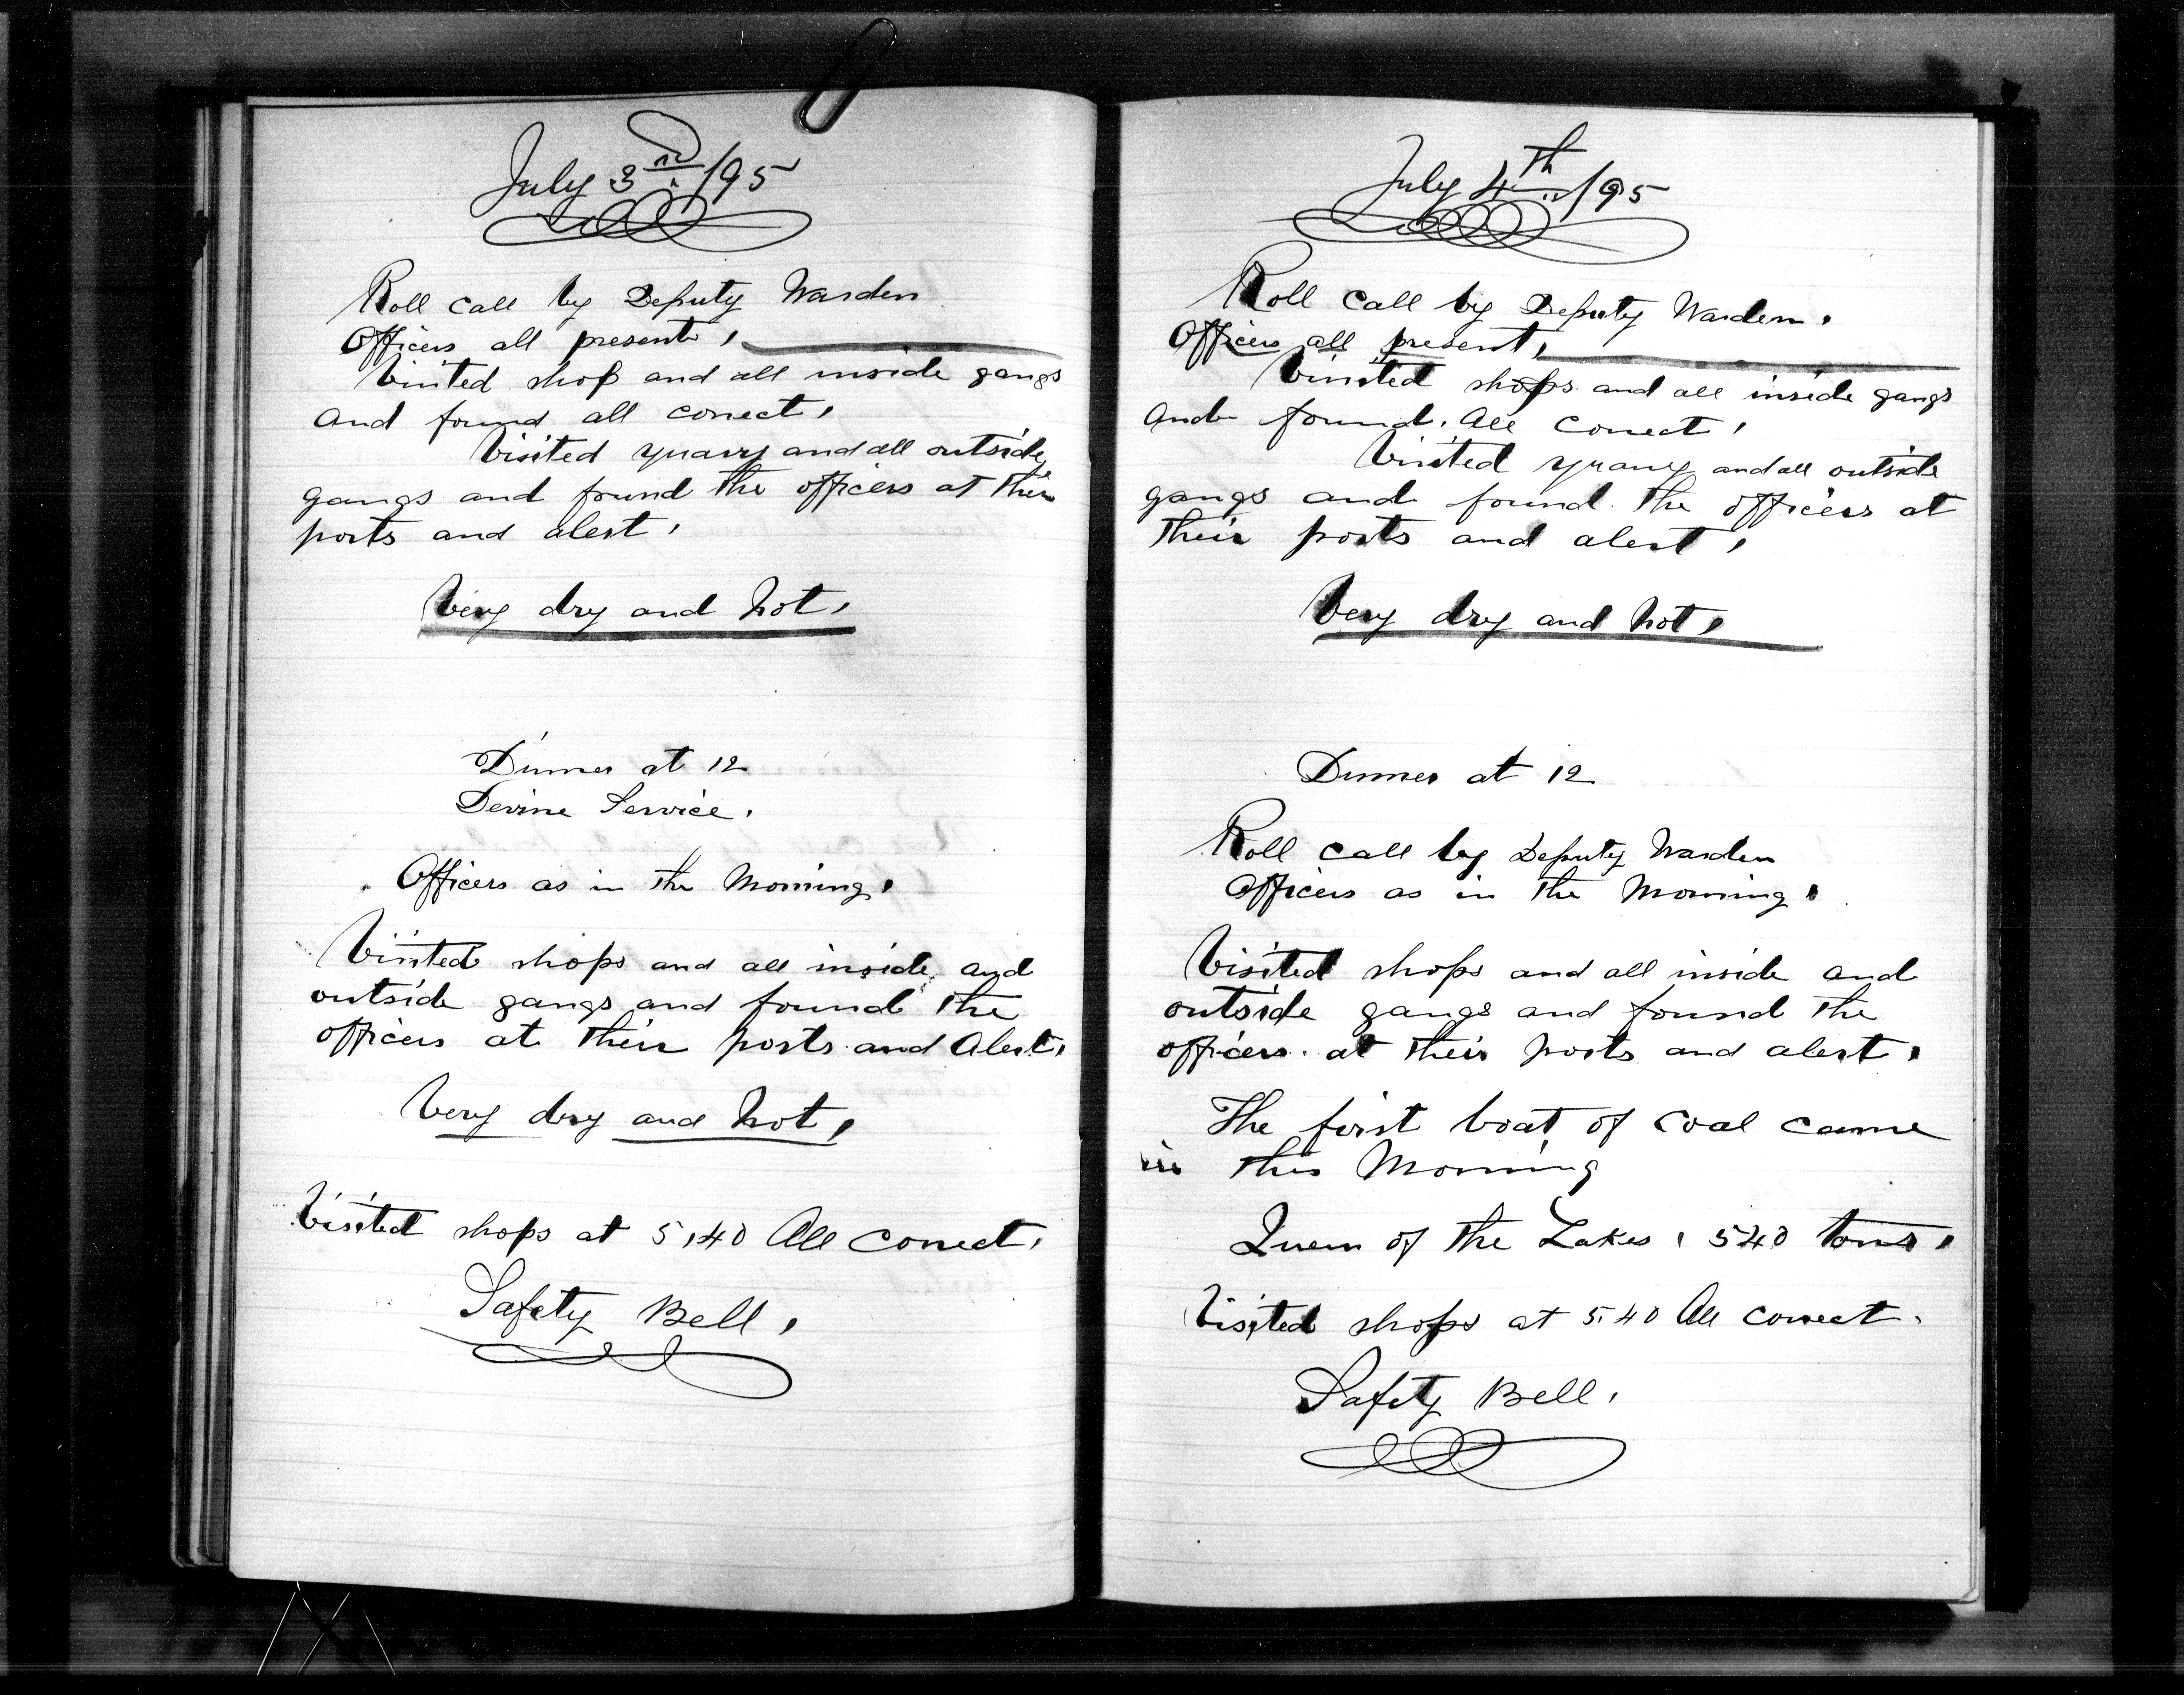 July 3rd /95
Roll Call by Deputy Warden
Officers all present,
Visited shop and all inside gangs
and found all correct,
Visited quarry and all outside
gangs and found the officers at their
posts and alert,
Very dry and hot,
Dinner at 12
Devine Service.
Officers as in the Morning,
Visited shops and all inside and
outside gangs and found the
officers at their posts and Alert,
Very dry and hot,
Visited shops at 5,40 All correct,
Safety Bell,
July 4th /95
Roll Call by Deputy Warden.
Officers all present,
Visited shops and all inside gangs
and found. All Correct,
Visited quarry and all outside
gangs and found the officers at
their posts and alert,
Very dry and hot,
Dinner at 12
Roll call by Deputy Warden
Officers as in the Morning,
Visited shops and all inside and
outside gangs and found the
officers at their posts and alert,
The first boat of coal came
in this Morning
Queen of the Lakes, 540 tons,
Visited shops at 5.40 All correct.
Safety Bell,